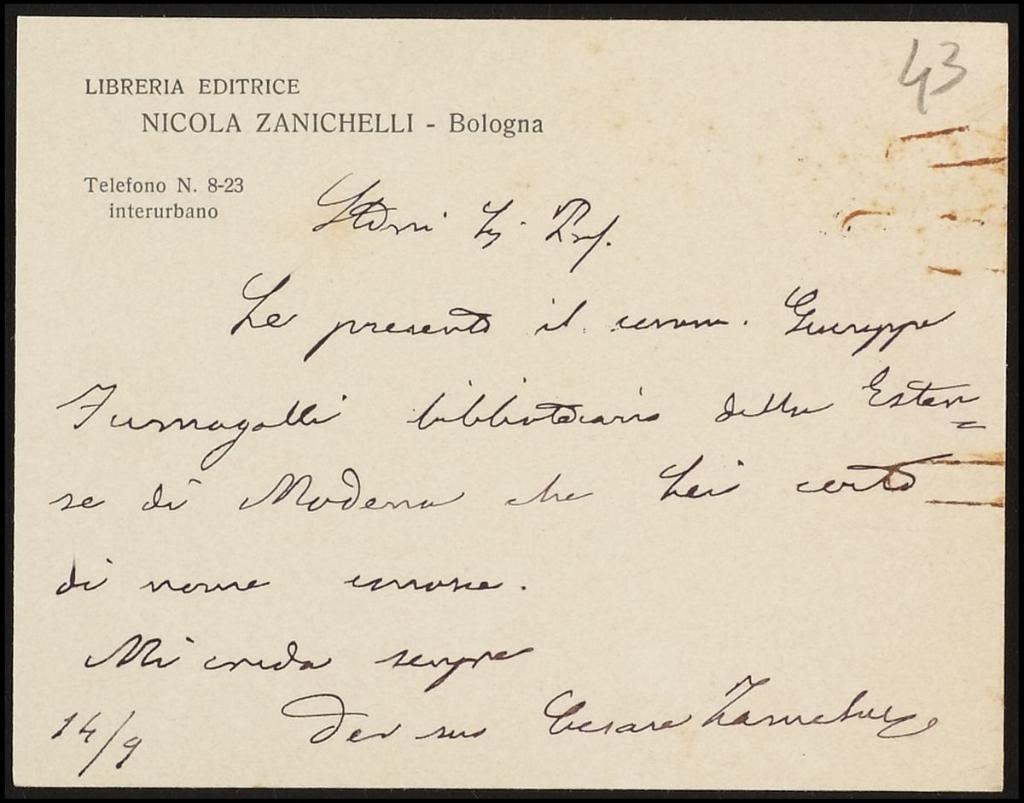 43
LIBRERIA EDITRICE
NICOLA ZANICHELLI - Bologna
Telefono N. 8-23
interurbano
Sig. Prof.
Le presento il comm. Giuseppe
Fumagalli bibliotecario della Esten=
se di Modena che Lei certo
di nome conosce.
Mi creda sempre
Dev suo Cesare Zanichelli
14/9